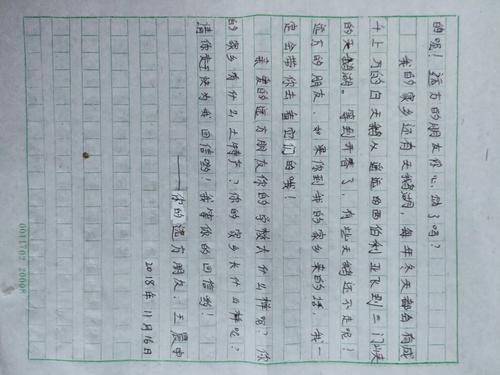 的呢！远方的朋友你心动了吗？
我的家乡还有天鹅湖，每年冬天都会有成
千上万的白天鹅从遥远的西伯利亚飞到三门峡
的天鹅湖。等到开春了，有些天鹅还不走呢！
远方的朋友，如果你到我的家乡来的话，我一
定会带你去看它们的哦！
亲爱的远方朋友你的学校什么样呢？你
的家乡有什么土特产？你的家乡长什么样呢？
请你赶快为我回信哟！我等你的回信哟！
——你的远方朋友：王晨
2018年11月16日